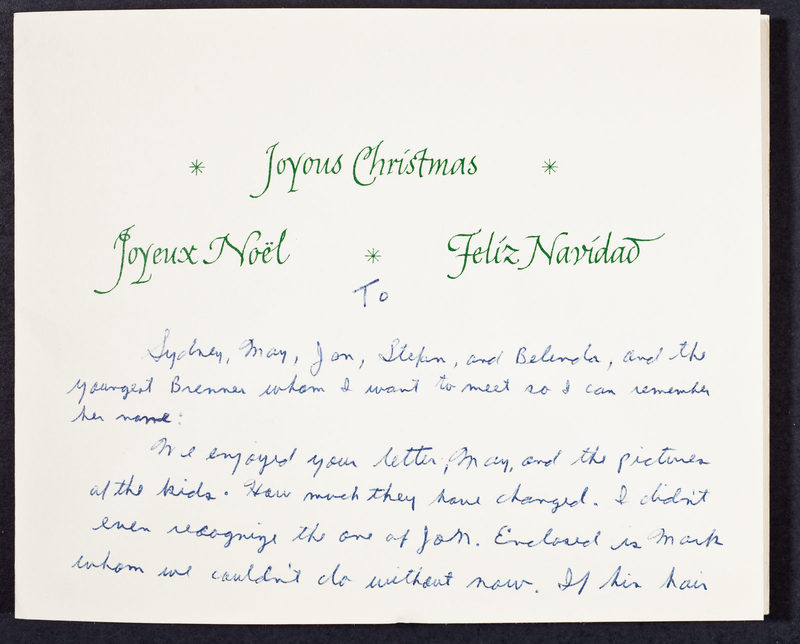 Joyous Christmas
Joyeux Noël * Feliz Navidad
To
Sydney, May, Jon, Stefan, and Belinda, and the
youngest Brenner whom I want to meet so I can remember
her name:
We enjoyed your letter, May, and the pictures
of the kids. How much they have changed. I didn't
even recognize the one of Jon. Enclosed is Mark
whom we couldn't do without now. If his hair